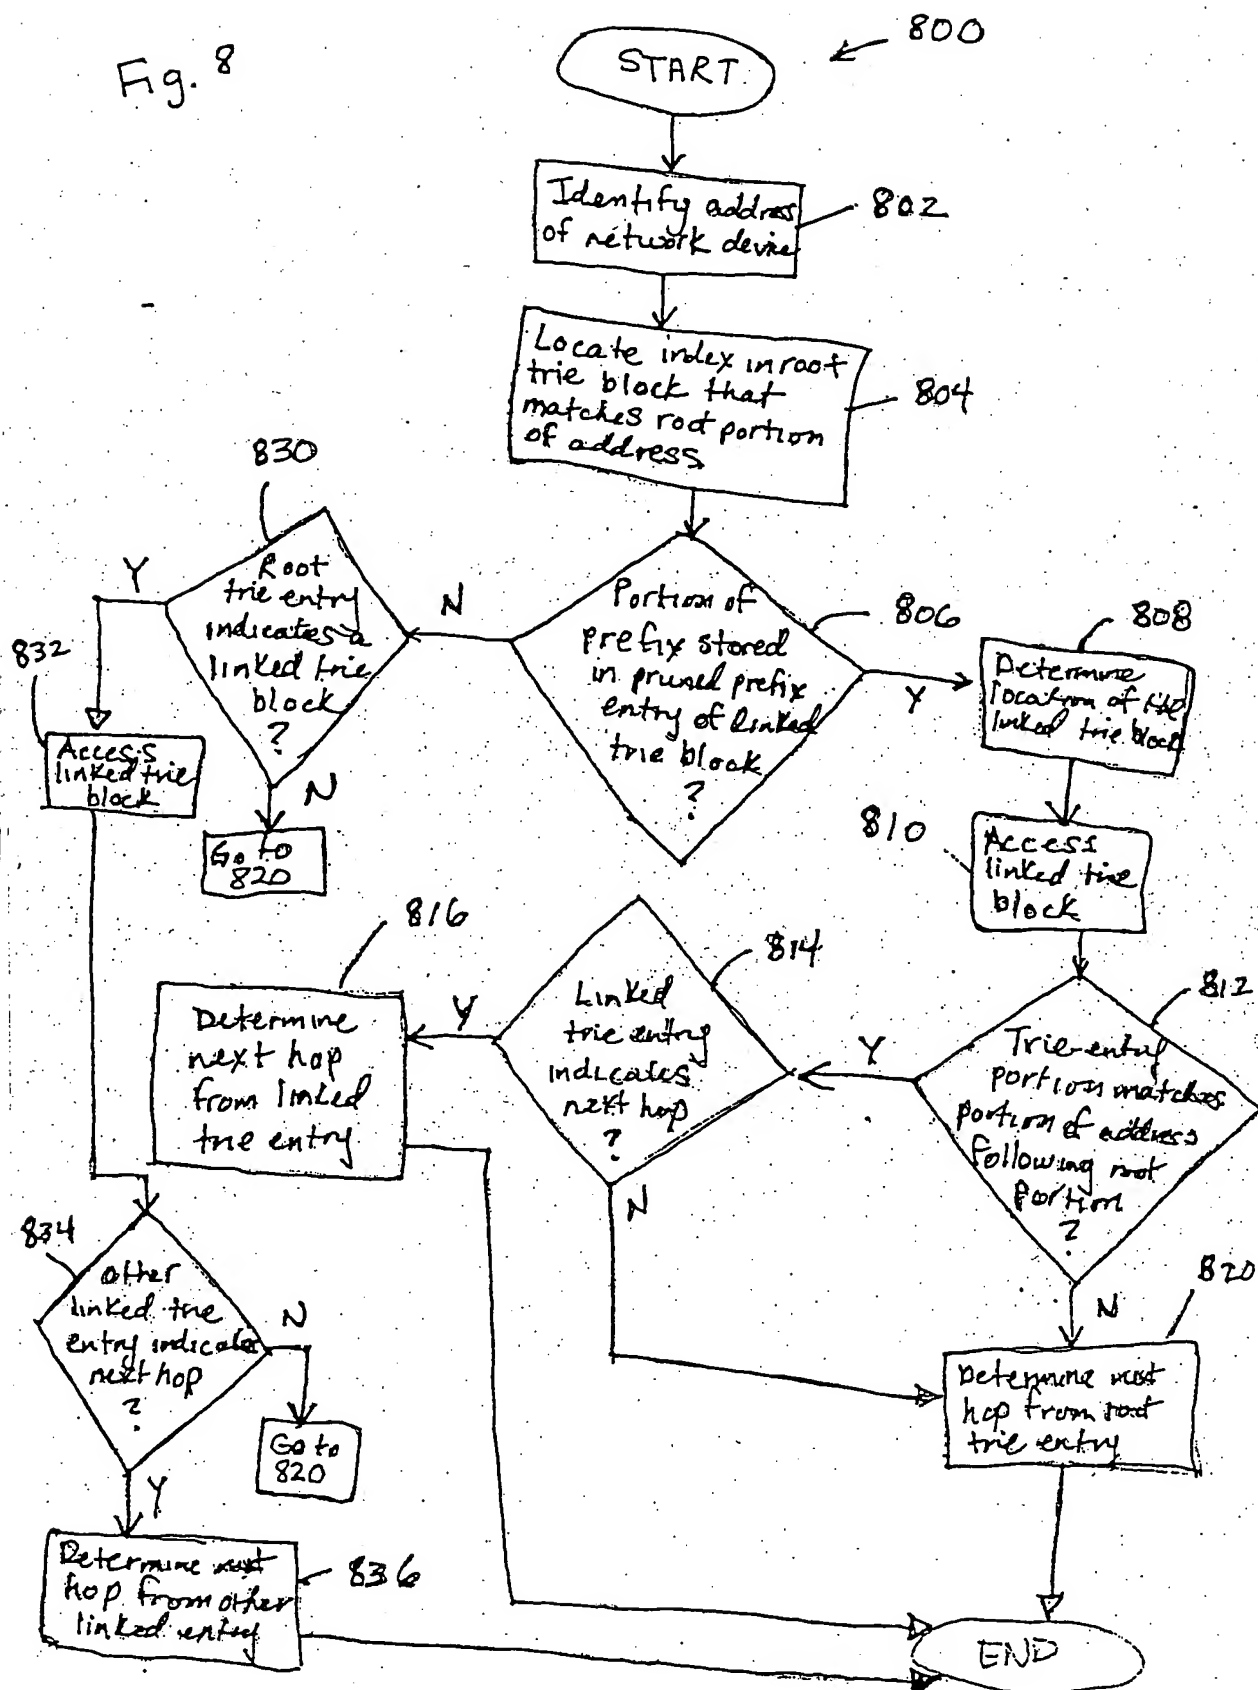 Fig. 8
800
START
Identify address
of network device
802
Locate index in root
trie block that
matches root portion
of address
804
830
Root
trie entry
indicates a
linked trie
block
?
Y
N
N
Portion of
prefix stored
in pruned prefix
entry of linked
trie block
?
806
Y
808
Determine
location of the
linked trie block
832
Access
linked trie
block
Go to
820
810
Access
linked trie
block
816
Determine
next hop
from linked
trie entry
Y
Linked
trie entry
indicates
next hop
?
814
N
Y
812
Trie-entry
portion matches
portion of address
following root
portion
?
N
820
Determine next
hop from root
trie entry
834
Other
linked trie
entry indicates
next hop
?
N
Go to
820
Y
Determine next
hop from other
linked entry
836
END